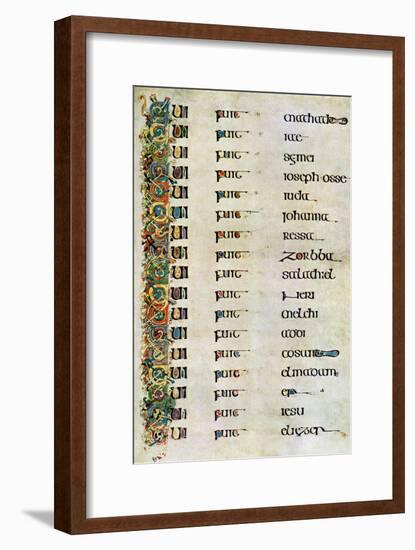 QUI fuit mathathie
QUI fuit
QUI fuit semei
QUI fuit ioseph osse
QUI fuit iuda
QUI fuit iohanna
QUI fuit ressa
QUI fuit zorbba
QUI fuit salathiel
QUI fuit neri
QUI fuit melchi
QUI fuit addi
QUI fuit cosam
QUI fuit elmadum
QUI fuit er
QUI fuit iesu
QUI fuit eliezer